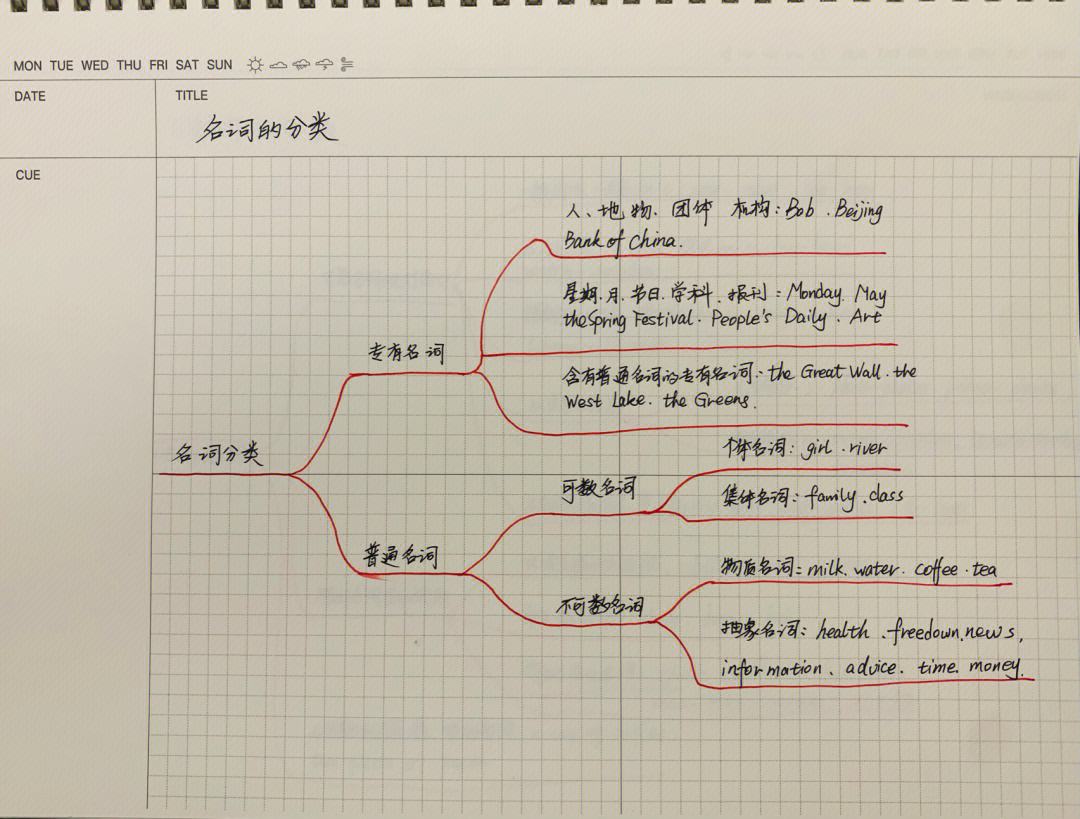 MON TUE WED THU FRI SAT SUN
DATE
TITLE
名词的分类
CUE
人、地、物、团体 机构：Bob、Beijing
Bank of China.
星期、月、节日、学科、报刊：Monday、May
the Spring Festival、People's Daily、Art
专有名词
含有普通名词的专有名词：the Great Wall、the
West Lake、the Greens.
名词分类
个体名词：girl、river
可数名词
集体名词：family、class
普通名词
物质名词：milk、water、coffee、tea
不可数名词
抽象名词：health、freedown、news、
information、advice、time、money.